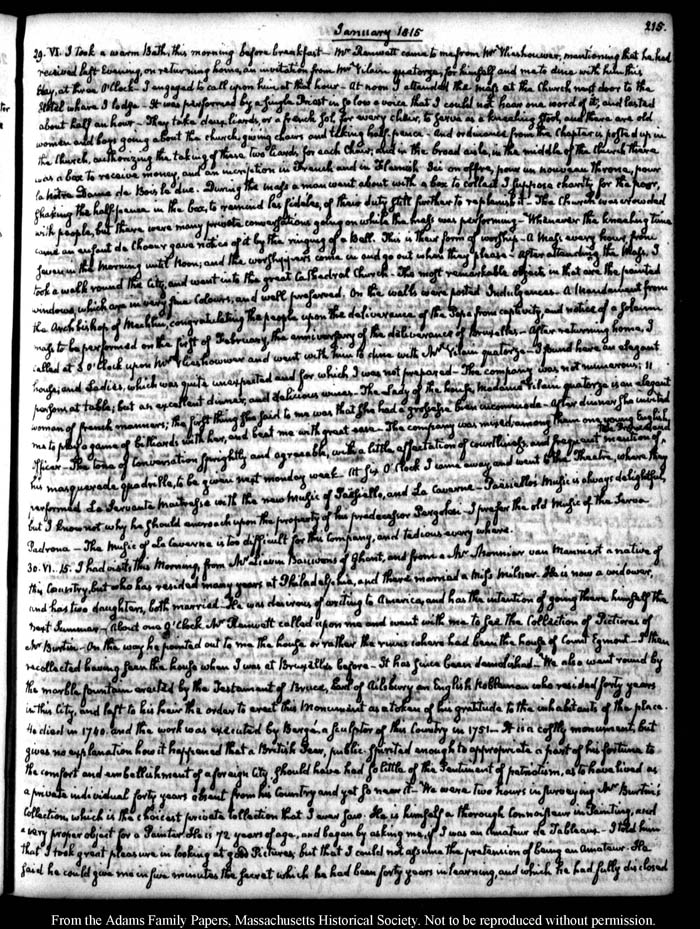 January 1815
215.
29. VI. I took a warm Bath, this morning before breakfast — Mr Ranwett came to me from Mr Wieshouwer, mentioning that he had
received last Evening, on returning home, an invitation from Mr Vilain quatorze, for himself and me to dine with him this
day, at three O'Clock — I engaged to call upon him at that hour — At noon I attended the mass at the Church next door to the
Hotel where I lodge — It was performed by a single Priest in so low a voice that I could not hear one word of it, and lasted
about half an hour — They take deux liards, or a french sol, for every chair, to serve as a kneeling stool, and there are old
women and boys going about the church, giving chairs and taking half-pence — And ordinance from the Chapter is posted up in
the Church, authorizing the taking of these two liards, for each Chair, and in the broad aisle, in the middle of the Church there
was a box to receive money, and an inscription in French and in Flemish Ici on offre, pour un nouveau Throne, pour
la Notre Dame de Bois le duc. During the mass a man went about with a box to collect I suppose charity for the poor,
shaking the half-pence in the box, to remind les fideles, of their duty still further to replenish it — The Church was crowded
with people, but there were many private conversations going on while the mass was performing — Whenever the kneeling time
came an enfant de Choeur gave notice of it by the ringing of a bell. This is their form of worship — A Mass every hour, from
seven in the morning until Noon; and the worshippers come in and go out when they please — After attending the Mass, I
took a walk round the City, and went into the great Cathedral Church — The most remarkable objects in that are the painted
windows which are in very fine Colours, and well preserved. On the walls were posted Indulgences — A Mandament from
the Arch bishop of Machlin, congratulating the people upon the deliverance of the Pope from captivity, and notice of a solemn
mass to be performed on the first of February, the anniversary of the deliverance of Brusselles — After returning home, I
called at 3 O'Clock upon Mr Wieshouwer and went with him to dine with Mr Vilain quatorze — I found here an elegant
house; and Ladies, which was quite unexpected and for which I was not prepared — The company was not numerous; 11
persons at table; but an excellent dinner, and delicious wines — The Lady of the house, Madame Vilain quatorze is an elegant
woman of french manners; the first thing she said to me was that she had a grossesse bien incommode — After dinner she invited
me to play a game of billiards with her, and beat me with great ease — The company was mixed; among them one young English
Officer — The tone of Conversation sprightly and agreeable, with a little affectation of courtliness, and frequent mention of
his masquerade quadrille, to be given next monday week — At six O'Clock I came away and went to the Theatre, where they
performed La Servante Maitresse with the new music of Paesiello, and La Caverne — Paesiello's Music is always delightful,
but I know not why he should encroach upon the property of his predecessor Pergolesi — I prefer the old Music of the Serva
Padrona — The Music of La Caverne is too difficult for this Company, and tedious every where.
30. VI. 15. I had visits, this Morning, from Mr Lieven Bauwens of Ghent, and from a Mr van Mannert a native of
this Country, but who has resided many years at Philadelphia, and there married a Miss Milnor. He is now a widower,
and has two daughters, both married. He was desirous of writing to America, and has the intention of going there himself the
next Summer — About one O'Clock Mr Ranwett called upon me and went with me to see the Collection of Pictures of
Mr Burtin — On the way he pointed out to me the house or rather the ruins where had been the house of Count Egmont — I then
recollected having seen the house when I was at Bruxelles before — It has since been demolished — We also went round by
the marble fountain erected by the Testament of Bruce, Earl of Ailsbury an English Nobleman who resided forty years
in this City, and left to his heir the order to erect this Monument as a token of his gratitude to the inhabitants of the place.
He died in 1740. and the work was executed by Bergé, a sculptor of this Country in 1751 — It is a costly monument, but
gives no explanation how it happened that a British Peer, public-spirited enough to appropriate a part of his fortune to
the comfort and embellishment of a foreign City, should have had so little of the Sentiment of patriotism, as to have lived as
a private individual forty years absent from his Country and yet so near it — We were two hours in surveying Mr Burtin's
Collection, which is the choicest private collection that I ever saw. He is himself a thorough Connoisseur in Painting, and
a very proper object for a Painter. He is 72 years of age, and began by asking me, if I was an Amateur de Tableaux — I told him
that I took great pleasure in looking at good Pictures, but that I could not assume the pretension of being an Amateur. He
said he could give me in five minutes the secret which he had been forty years in learning, and which he had fully disclosed
From the Adams Family Papers, Massachusetts Historical Society. Not to be reproduced without permission.